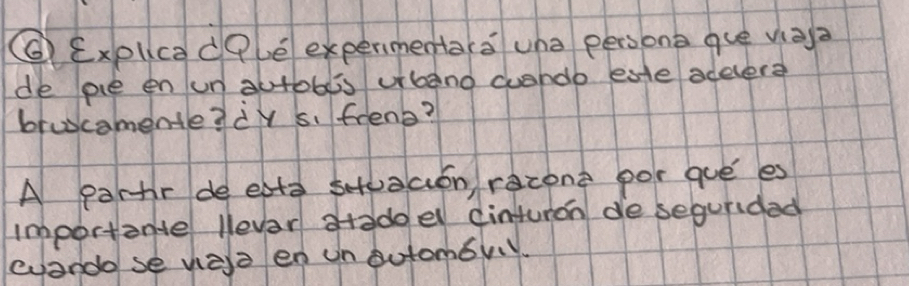 ⑥ Explica ¿Qué experimentará una persona que viaja
de pie en un autobús urbano cuando este acelera
bruscamente? ¿Y si frena?
A partir de esta situación, razona por qué es
importante llevar atado el cinturón de seguridad
cuando se viaja en un automóvil.